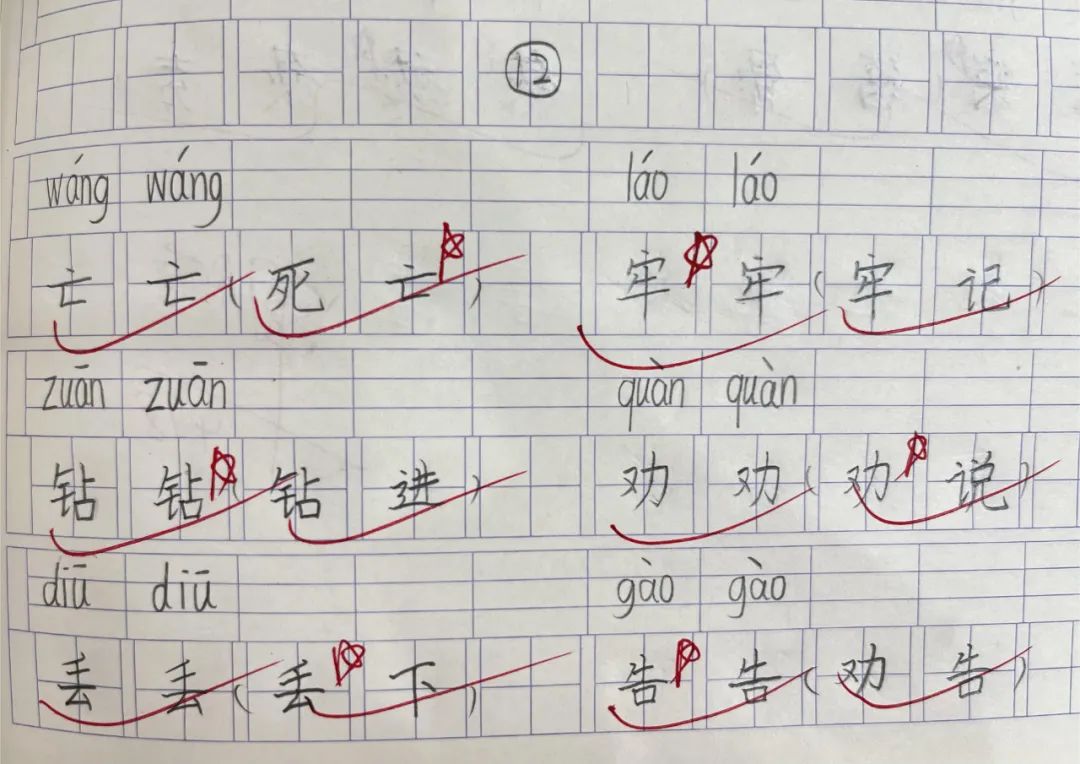 12
wáng wáng láo láo
亡 亡(死 亡) 牢 牢(牢 记)
zuān zuān quàn quàn
钻 钻(钻 进) 劝 劝(劝 说)
diū diū gào gào
丢 丢(丢 下) 告 告(劝 告)